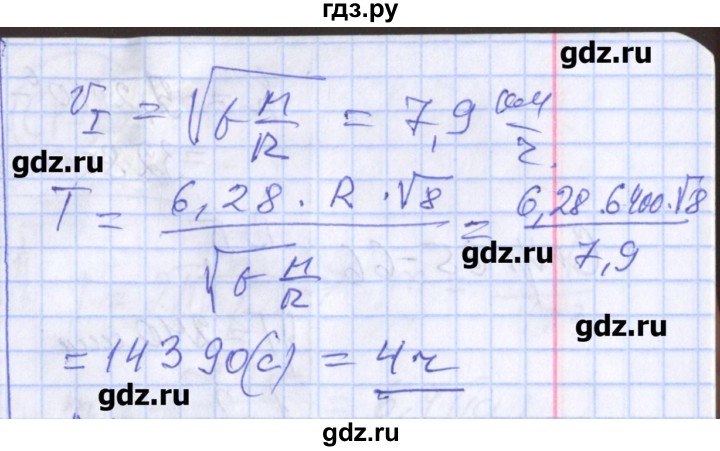 гдз.ру
gdz.ru
v_I = √(G M/R) = 7,9 км/ч.
gdz.ru
T = 6,28 · R · √8 / √(G M/R) = 6,28 · 6400 · √8 / 7,9
gdz.ru
gdz.ru
gdz.ru
= 14390(с) = 4ч
gdz.ru
gdz.ru